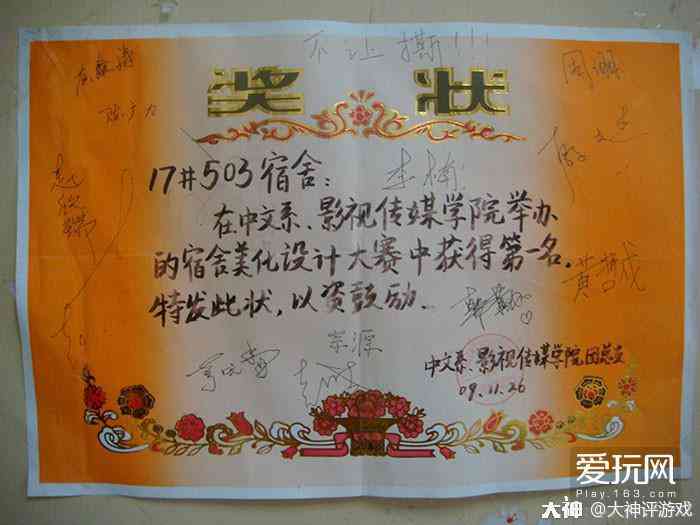 不让撕!!!
周翊
陈广力
奖状
17#503宿舍:
李楠
在中文系、影视传媒学院举办
的宿舍美化设计大赛中获得第一名,
特发此状,以资鼓励.
黄哲成
宗源
中文系、影视传媒学院团总支
09.11.26
爱玩网
Play.163.com
大神 @大神评游戏